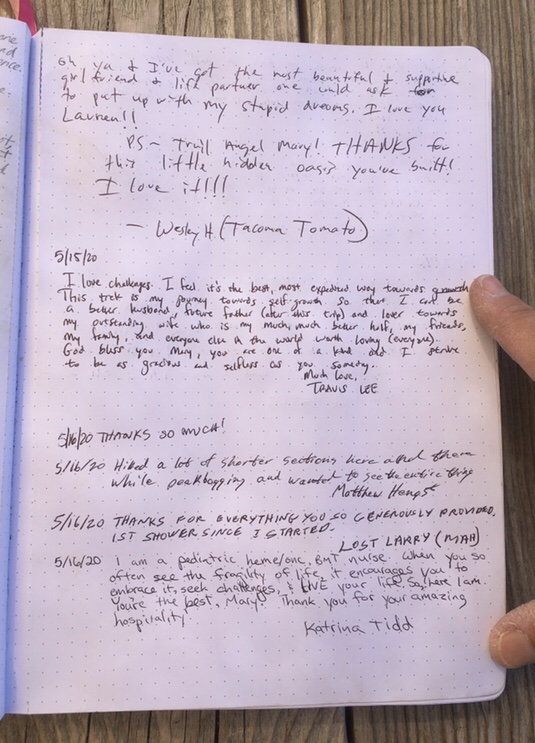 oh ya & I've got the most beautiful & supportive
girlfriend & life partner one could ask for
to put up with my stupid dreams. I love you
Lauren!!
PS~ Trail Angel Mary! THANKS for
this little hidden oasis you've built!
I love it!!!
— Wesley H (Tacoma Tomato)
5/15/20
I love challenges. I feel it's the best, most expedited way towards growth.
This trek is my journey towards self-growth so that I can be
a better husband, future father (after this trip) and lover towards
my outstanding wife who is my much, much better half, my friends,
my family, and everyone else in the world worth loving (everyone).
God bless you Mary, you are one of a kind and I strive
to be as gracious and selfless as you someday.
Much love,
TRAVIS LEE
5/16/20 THANKS SO MUCH!
5/16/20 Hiked a lot of shorter sections here and there
while peakbagging and wanted to see the entire thing
Matthew
5/16/20 THANKS FOR EVERYTHING YOU SO GENEROUSLY PROVIDED.
1ST SHOWER SINCE I STARTED.
LOST LARRY (MAH)
5/16/20 I am a pediatric heme/onc, BMT nurse. When you so
often see the fragility of life, it encourages you to
embrace it, seek challenges, & LIVE your life. So, here I am.
You're the best, Mary! Thank you for your amazing
hospitality
Katrina Tidd